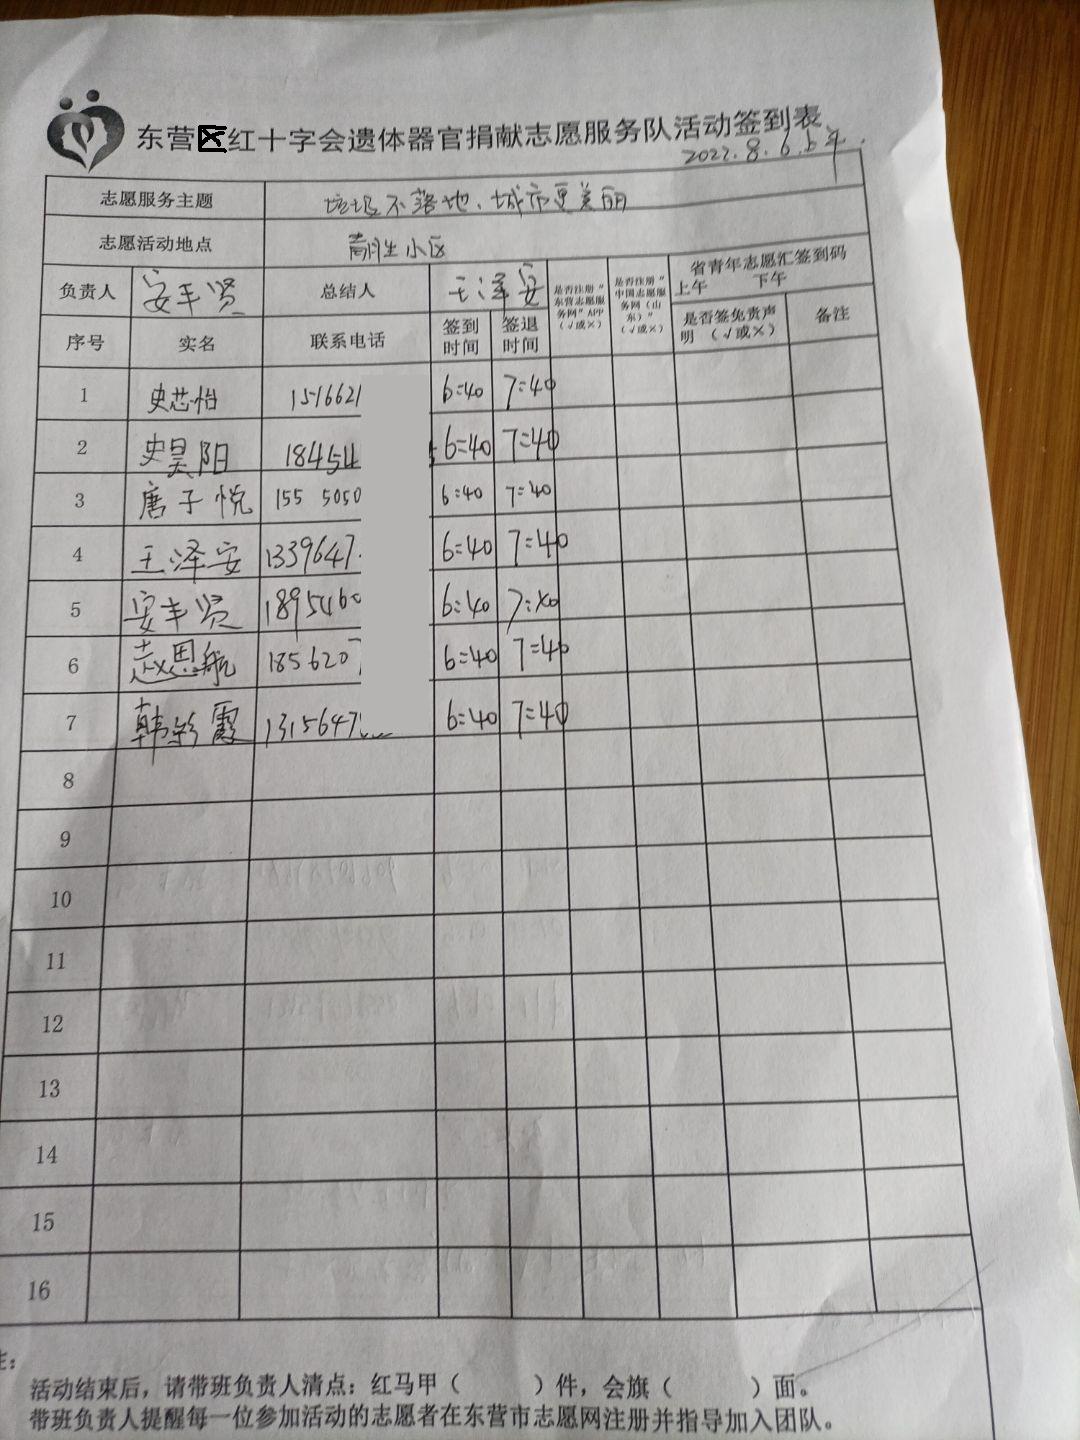 东营区红十字会遗体器官捐献志愿服务队活动签到表
2022.8.6上午.
志愿服务主题 垃圾不落地、城市更美丽
志愿活动地点 小区
负责人 安丰贤 总结人 王泽安 是否注册“东营志愿服务网”APP（√或×） 是否注册“中国志愿服务网（山东）”（√或×） 省青年志愿汇签到码
上午 下午
序号 实名 联系电话 签到时间 签退时间 是否签免责声明（√或×） 备注
1 史芯怡 1516621 6:40 7:40
2 史昊阳 18454 6:40 7:40
3 唐子悦 155 5050 6:40 7:40
4 王泽安 1339647 6:40 7:40
5 安丰贤 1895460 6:40 7:40
6 赵恩航 185620 6:40 7:40
7 韩彩霞 1315647 6:40 7:40
8
9
10
11
12
13
14
15
16
注：
活动结束后，请带班负责人清点：红马甲（ ）件，会旗（ ）面。
带班负责人提醒每一位参加活动的志愿者在东营市志愿网注册并指导加入团队。